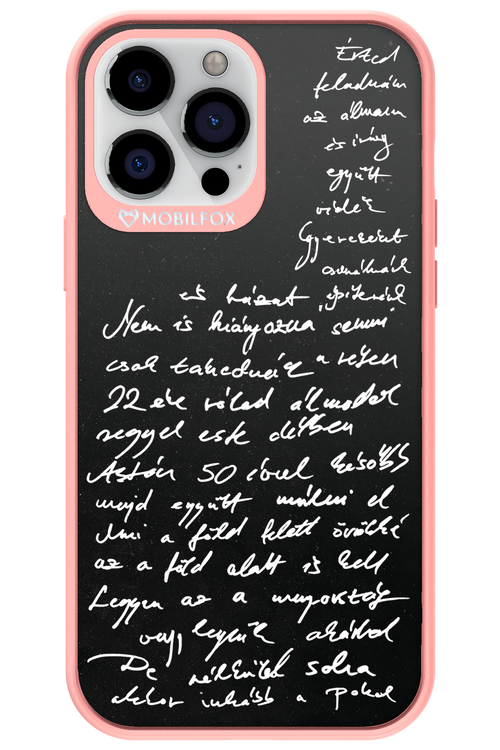 MOBILFOX
Érted
feladnám
az álmaim
és irány
együtt
vidék
Gyerekeket
csinálnánk
és házat építenénk
Nem is hiányozna semmi
csak takednék a részem
22 éve rólad álmodok
reggel este délben
Aztán 50 évvel később
majd együtt múlni el
Ami a föld felett örökké
az a föld alatt is kell
Legyen az a mennyország
vagy legyünk akárhol
De nélküled soha
akkor inkább a pokol